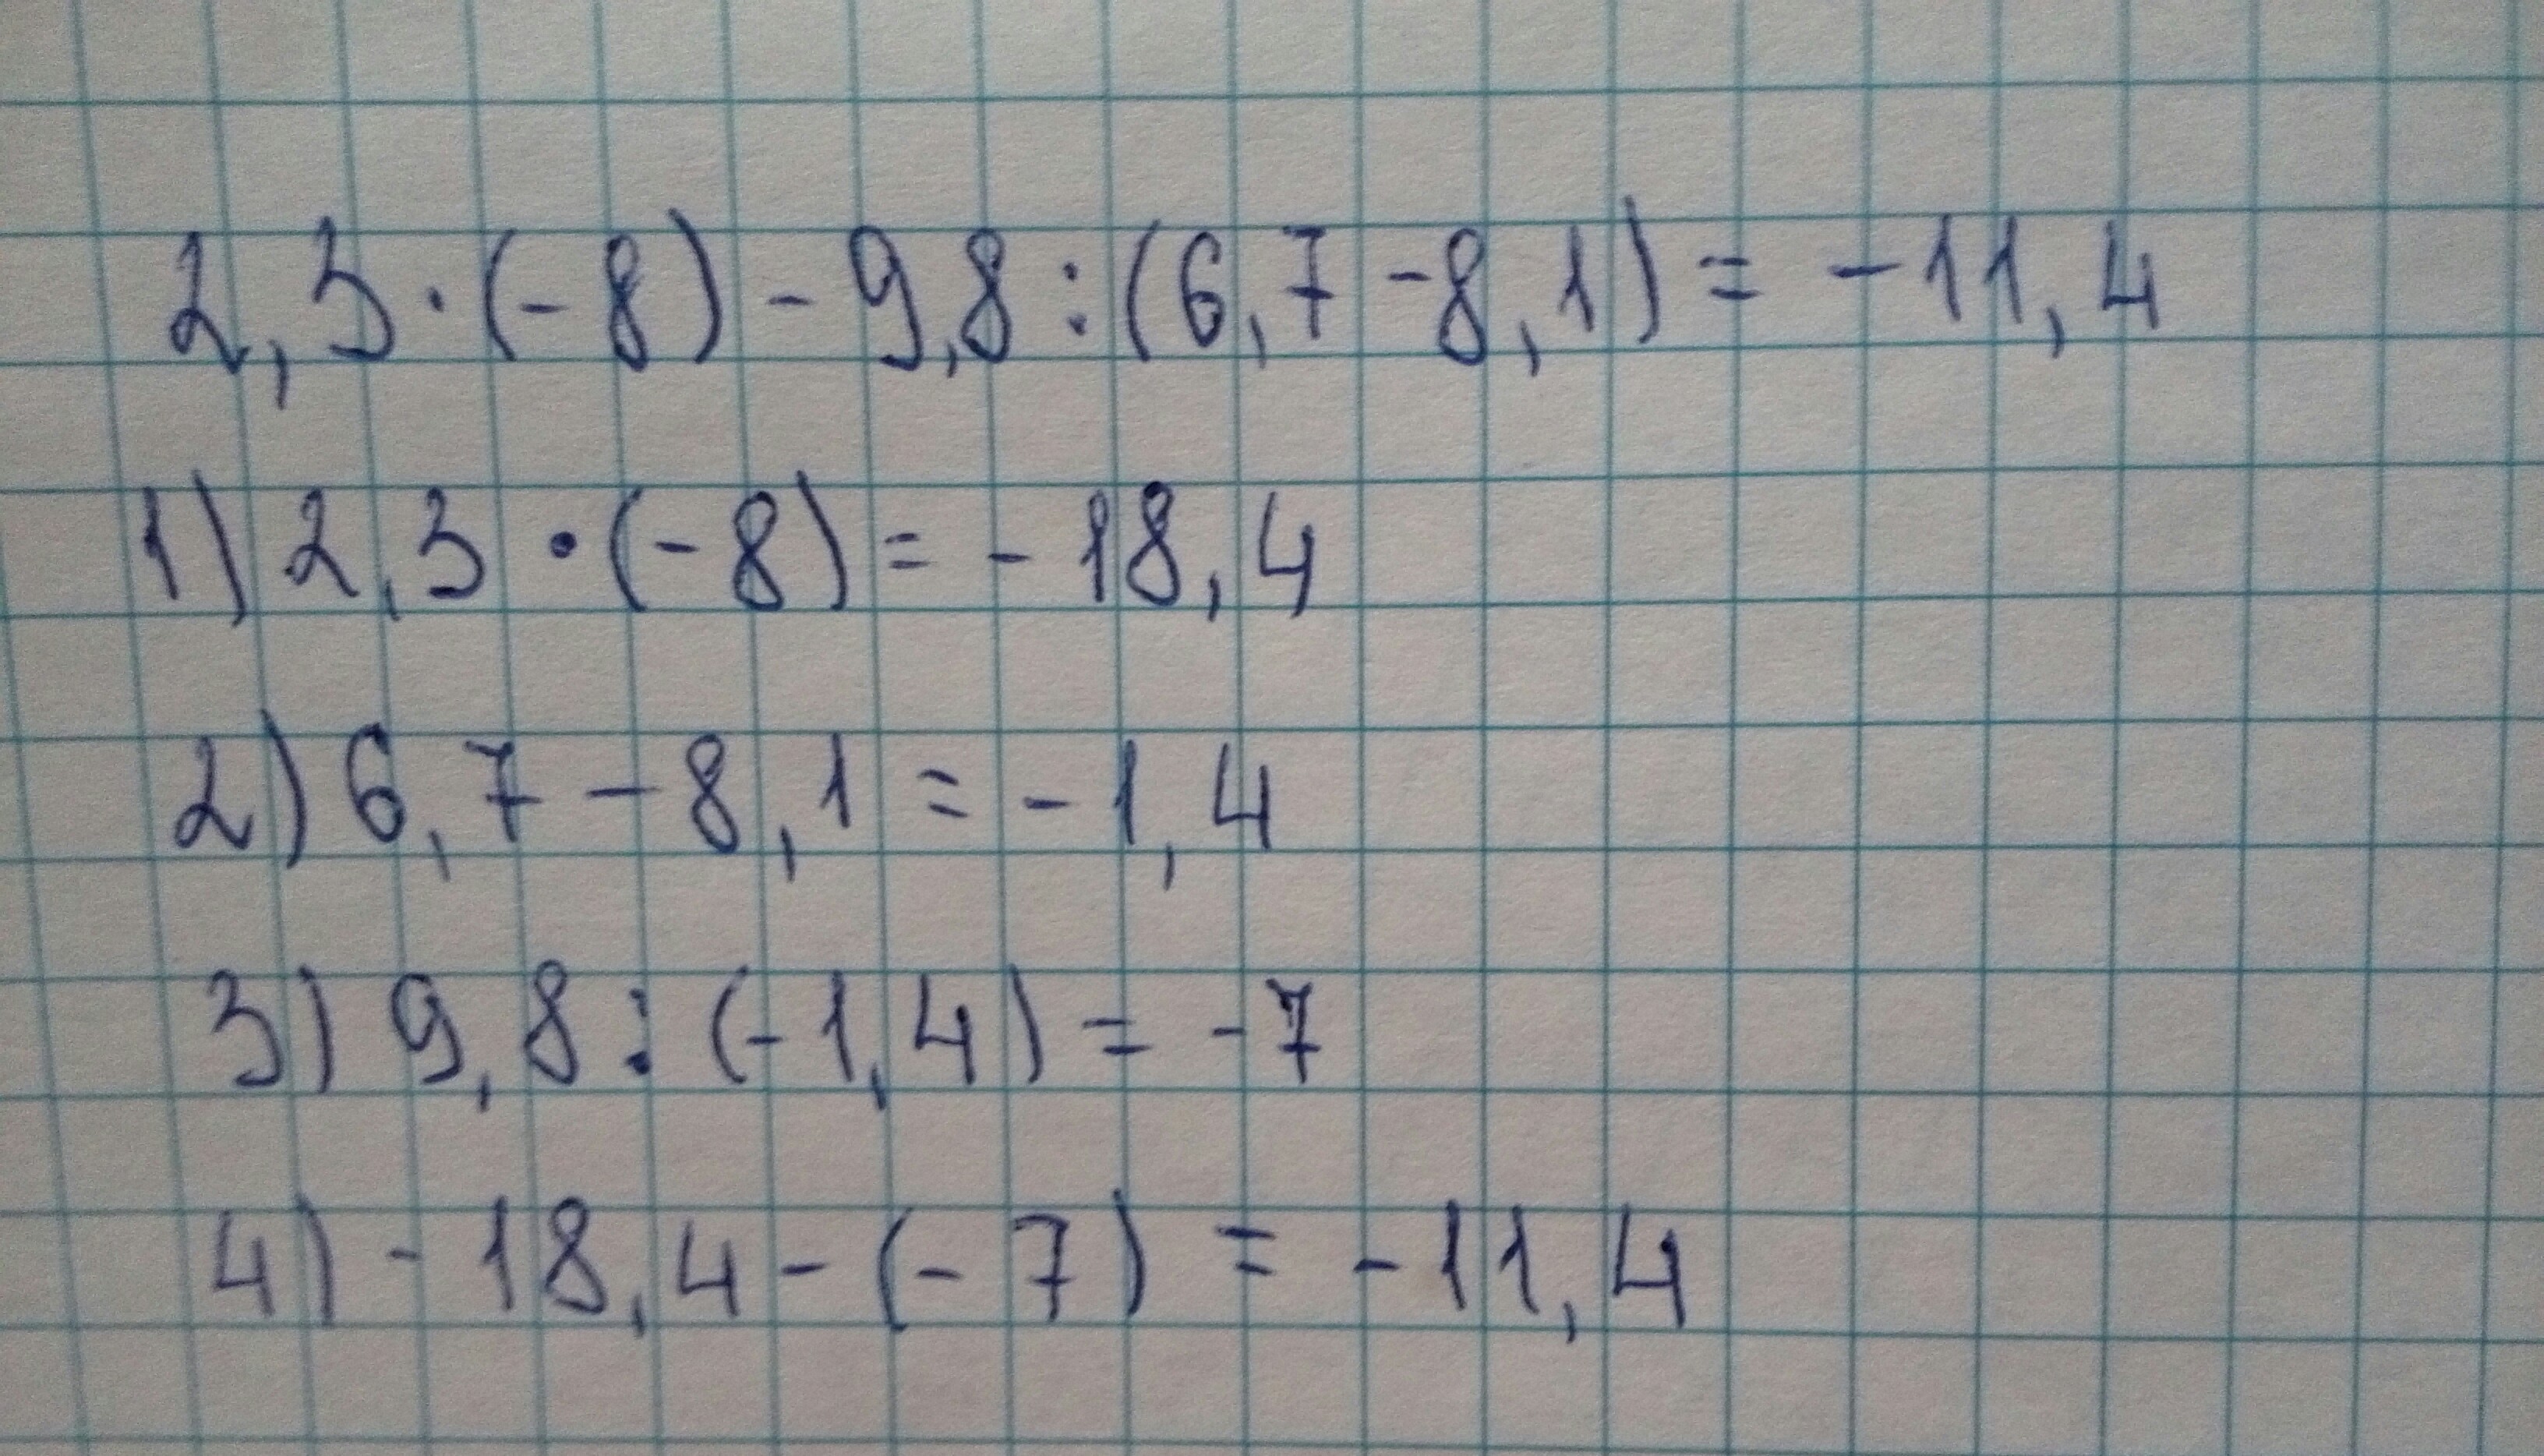 2,3·(-8)-9,8:(6,7-8,1)=-11,4
1) 2,3·(-8)=-18,4
2) 6,7-8,1=-1,4
3) 9,8:(-1,4)=-7
4) -18,4-(-7)=-11,4